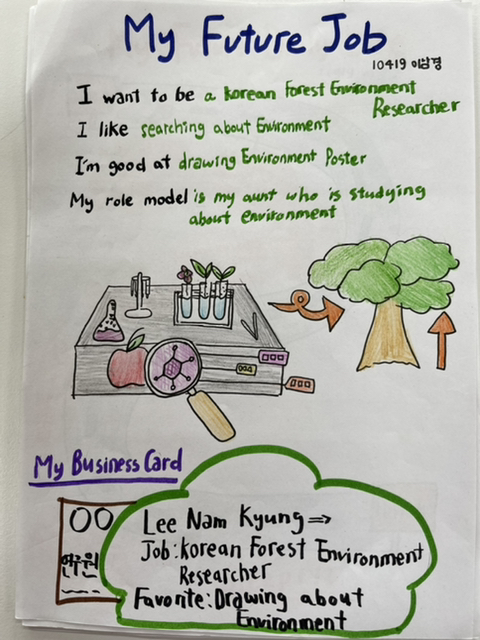 My Future Job
10419 이남경
I want to be a korean Forest Environment
Researcher
I like searching about Environment
I'm good at drawing Environment Poster
My role model is my aunt who is studying
about environment
My Business Card
OO
연구원
Lee Nam Kyung⇒
Job:korean Forest Environment
Researcher
Favorite:Drawing about
Environment